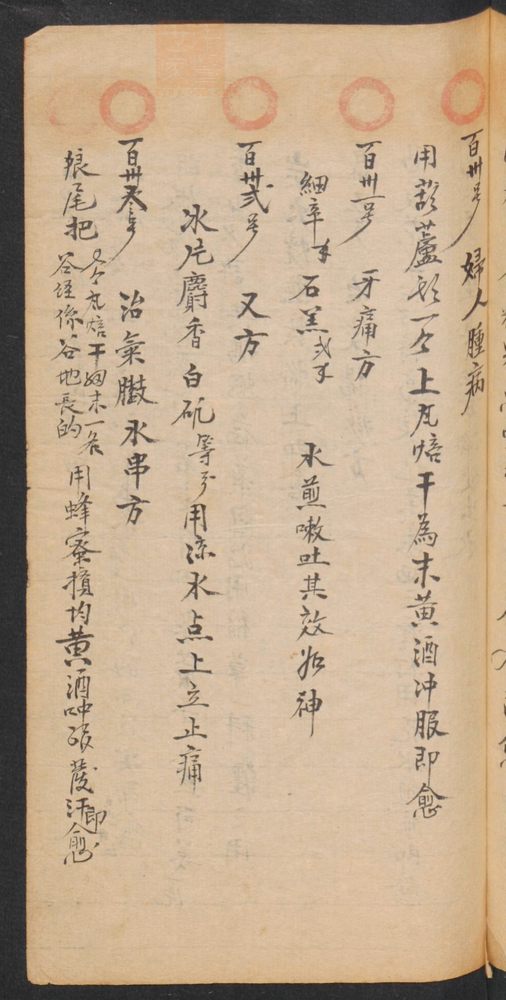 百卅号 婦人腫病
用葫蘆頭一个上瓦焙干為末黄酒冲服即愈
百卅一号 牙痛方
細辛 石羔 水煎嗽吐其效如神
百卅弐号 又方
冰片麝香白矾等分用凉水点上立止痛
百卅叁号 治氣臌水串方
狼尾把 瓦焙干细末一名
谷 係谷地長的
用蜂蜜損均黄酒冲服發汗即愈